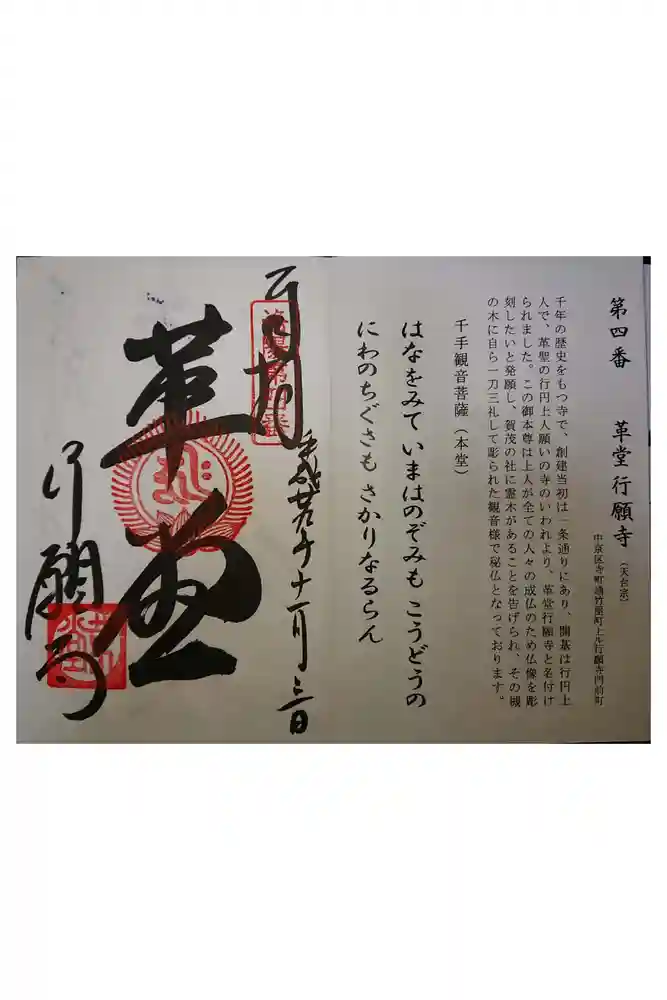 第四番 革堂行願寺（天台宗）
中京区寺町通竹屋町上ル行願寺門前町
千年の歴史をもつ寺で、創建当初は一条通りにあり、開基は行円上
人で、革聖の行円上人願いの寺のいわれより、革堂行願寺と名付け
られました。この御本尊は上人が全ての人々の成仏のため仏像を彫
刻したいと発願し、賀茂の社に霊木があることを告げられ、その槻
の木に自ら一刀三礼して彫られた観音様で秘仏となっております。
千手観音菩薩（本堂）
はなをみて いまはのぞみも こうどうの
にわのちぐさも さかりなるらん
奉拝
洛陽第四番
平成廿九年十一月三日
革堂
行願寺